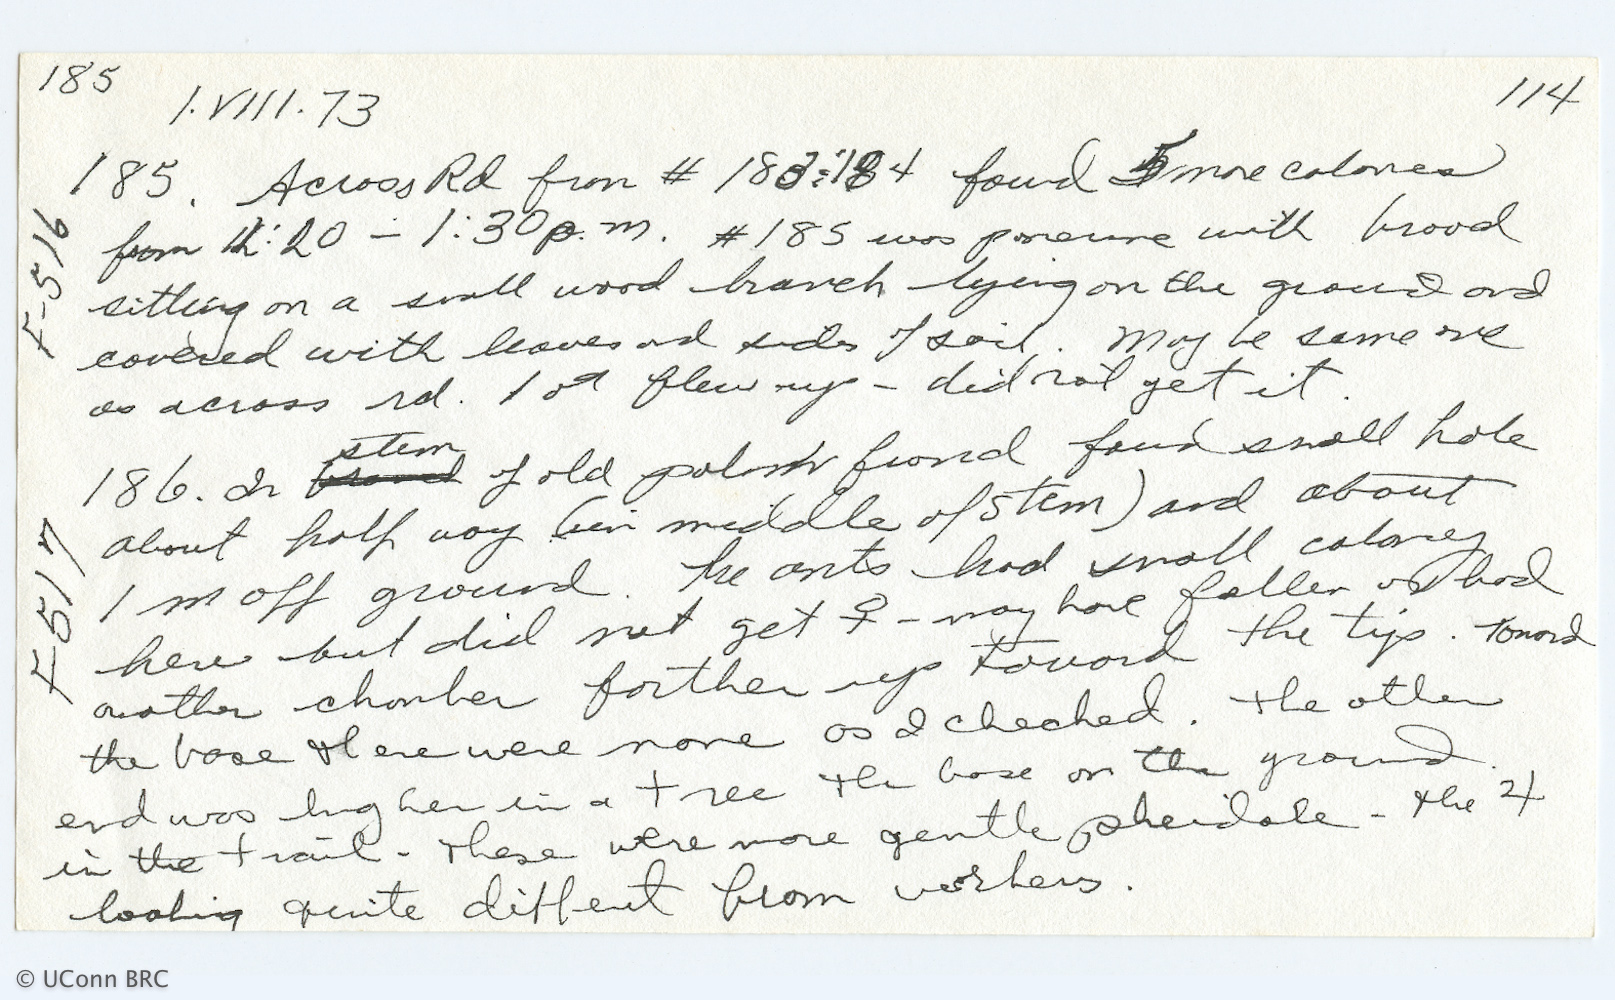 185
114
1.VIII.73
185. Across Rd from # 183:184 found 5 more colonies
from 12:20 - 1:30 p.m. #185 was ponerine with brood
sitting on a small wood branch lying on the ground and
covered with leaves and sides of soil. May be same one
as across rd. 1 flew up - did not get it.
F-516
stem
186. In of old palm frond found small hole
about half way (in middle of stem) and about
1 m off ground. The ants had small colony
here but did not get ♀ - may have fallen or had
another chamber farther up toward the tip. Toward
the base there were none as I checked. The other
end was higher in a tree the base on the ground.
in the trail - These were more gentle pheidole - the 4
looking quite different from workers.
F517
© UConn BRC